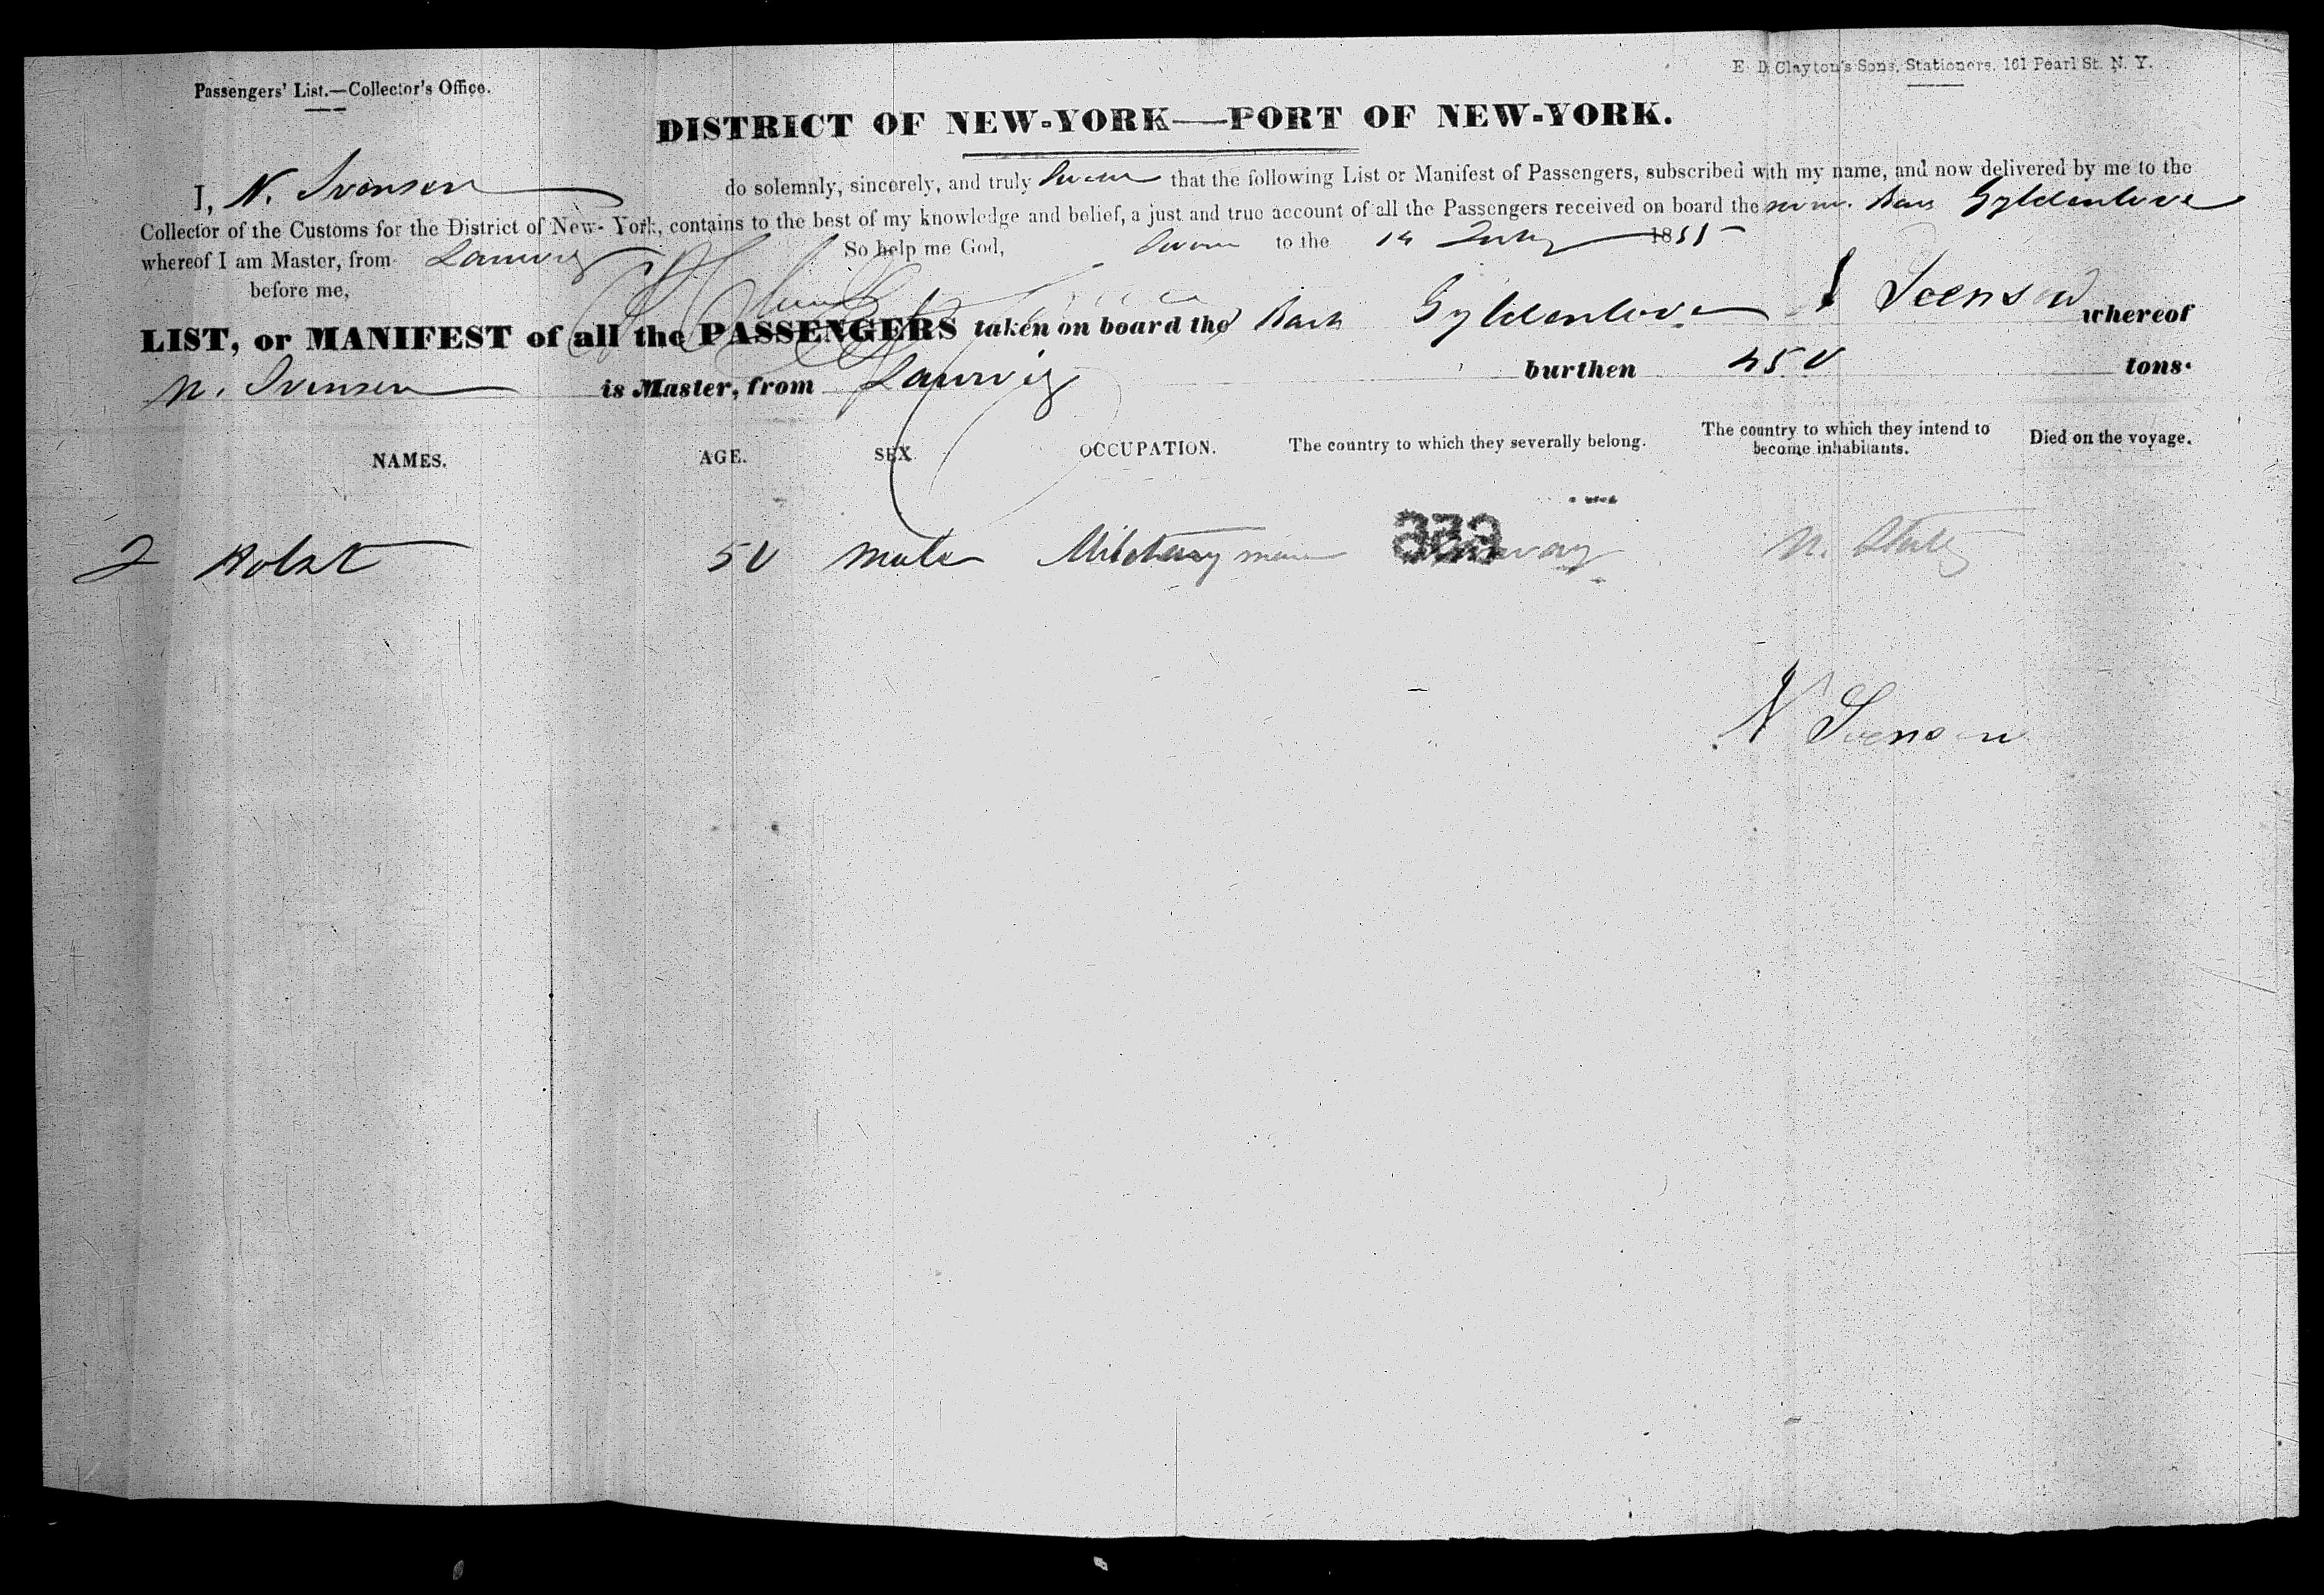 Passengers' List.—Collector's Office.
E. D. Clayton's Sons, Stationers, 161 Pearl St. N. Y.
DISTRICT OF NEW-YORK—PORT OF NEW-YORK.
I, N. Svensen do solemnly, sincerely, and truly Swear that the following List or Manifest of Passengers, subscribed with my name, and now delivered by me to the
Collector of the Customs for the District of New-York, contains to the best of my knowledge and belief, a just and true account of all the Passengers received on board the Norw. Bark Gyldenlove
whereof I am Master, from Laurvig So help me God, Sworn to the 14 July 1855
before me,
LIST, or MANIFEST of all the PASSENGERS taken on board the Bark Gyldenlove Svensen whereof
N. Svensen is Master, from Laurvig burthen 450 tons.
NAMES. AGE. SEX OCCUPATION. The country to which they severally belong. The country to which they intend to become inhabitants. Died on the voyage.
Holst 50 Male Military man Norway U. States
N Svensen